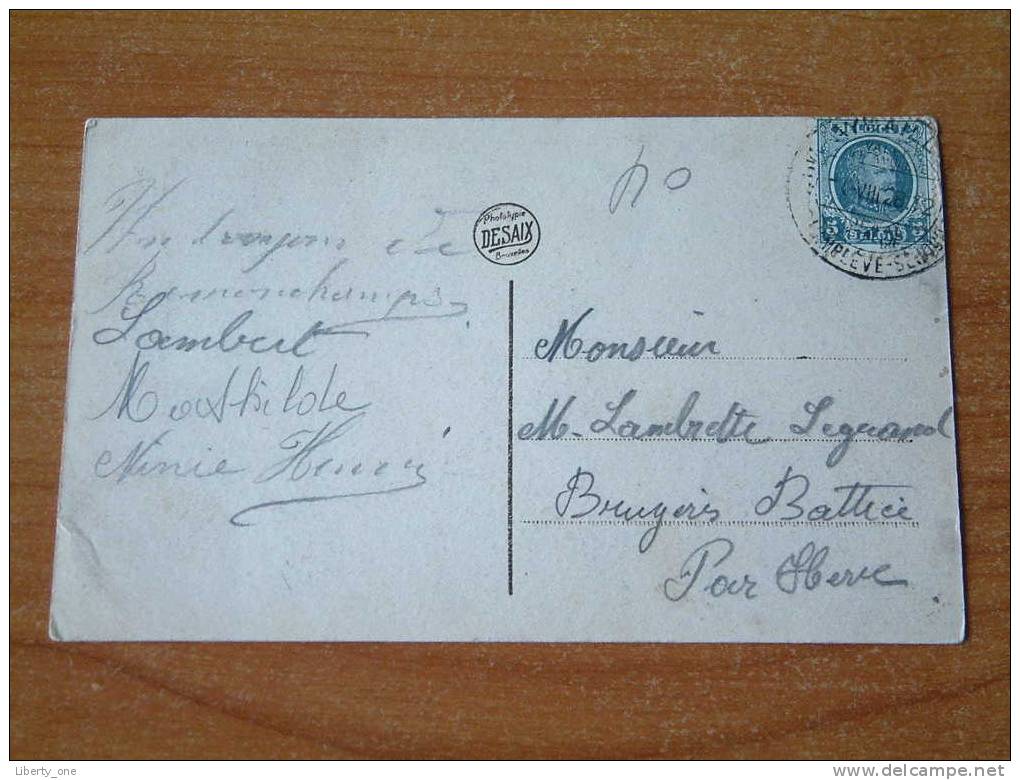 Un bonjour de
Remonchamps
Lambert
Mathilde
Ninie Henri
Phototypie
DESAIX
Bruxelles
VIII 26
5 5
Monsieur
M. Lambrette Legrand
Bruyère Battice
Par Herve
Liberty_one
http://www.delcampe.net